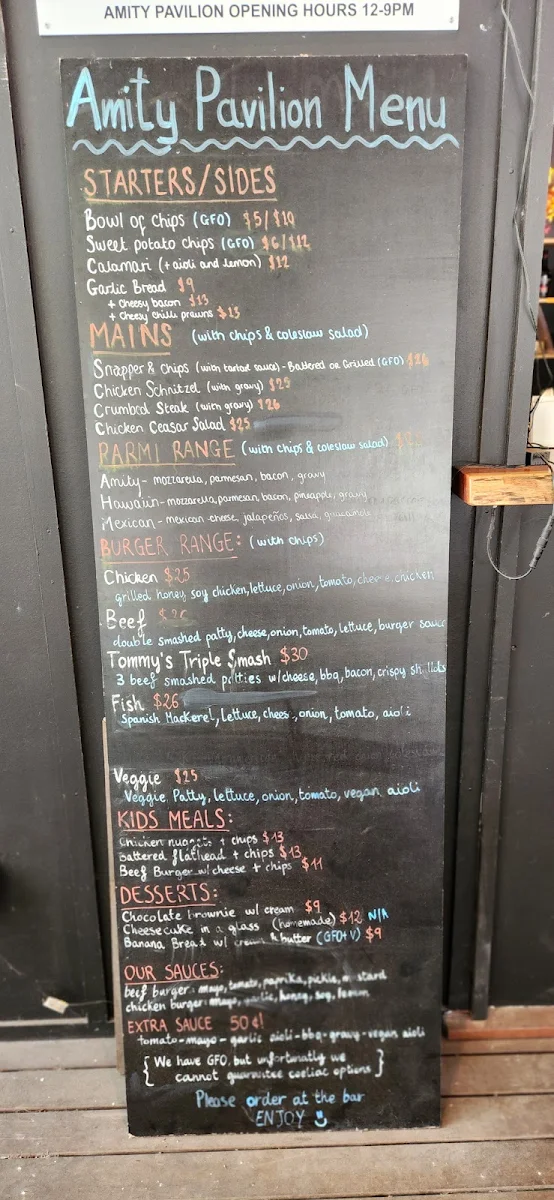 AMITY PAVILION OPENING HOURS 12-9PM
Amity Pavilion Menu
STARTERS/SIDES
Bowl of Chips (GFO) $5/$10
Sweet potato chips (GFO) $6/$12
Calamari (+aioli and lemon) $12
Garlic Bread $9
+ cheesy bacon $13
+ cheesy chilli prawns $15
MAINS (with chips & coleslaw salad)
Snapper & chips (with tartar sauce) - Battered or Grilled (GFO) $26
Chicken Schnitzel (with gravy) $25
Crumbed Steak (with gravy) $26
Chicken Ceasar Salad $25
PARMI RANGE (with chips & coleslaw salad)
Amity - mozzarella, parmesan, bacon, gravy
Hawaiin - mozzarella, parmesan, bacon, pineapple, gravy
Mexican - mexican cheese, jalapeños, salsa, guacamole
BURGER RANGE: (with chips)
Chicken $25
grilled honey soy chicken, lettuce, onion, tomato, cheese, chicken
Beef $26
double smashed patty, cheese, onion, tomato, lettuce, burger sauce
Tommy's Triple Smash $30
3 beef smashed patties w/cheese, bbq, bacon, crispy
Fish $26
Spanish Mackerel, lettuce, cheese, onion, tomato, aioli
Veggie $25
Veggie Patty, lettuce, onion, tomato, vegan aioli
KIDS MEALS:
Chicken nuggets + chips $13
Battered flathead + chips $13
Beef Burger w/cheese + chips $11
DESSERTS:
Chocolate brownie w/ cream $9
Cheesecake in a glass (homemade) $12 N/A
Banana Bread w/ cream & butter (GFO+V) $9
OUR SAUCES:
beef burger: mayo, tomato, paprika, pickle, mustard
chicken burger: mayo, garlic, honey, soy, lemon
EXTRA SAUCE 50¢!
tomato-mayo-garlic aioli-bbq-gravy-vegan aioli
{ We have GFO, but unfortunatly we }
cannot guarantee coeliac options
Please order at the bar
ENJOY